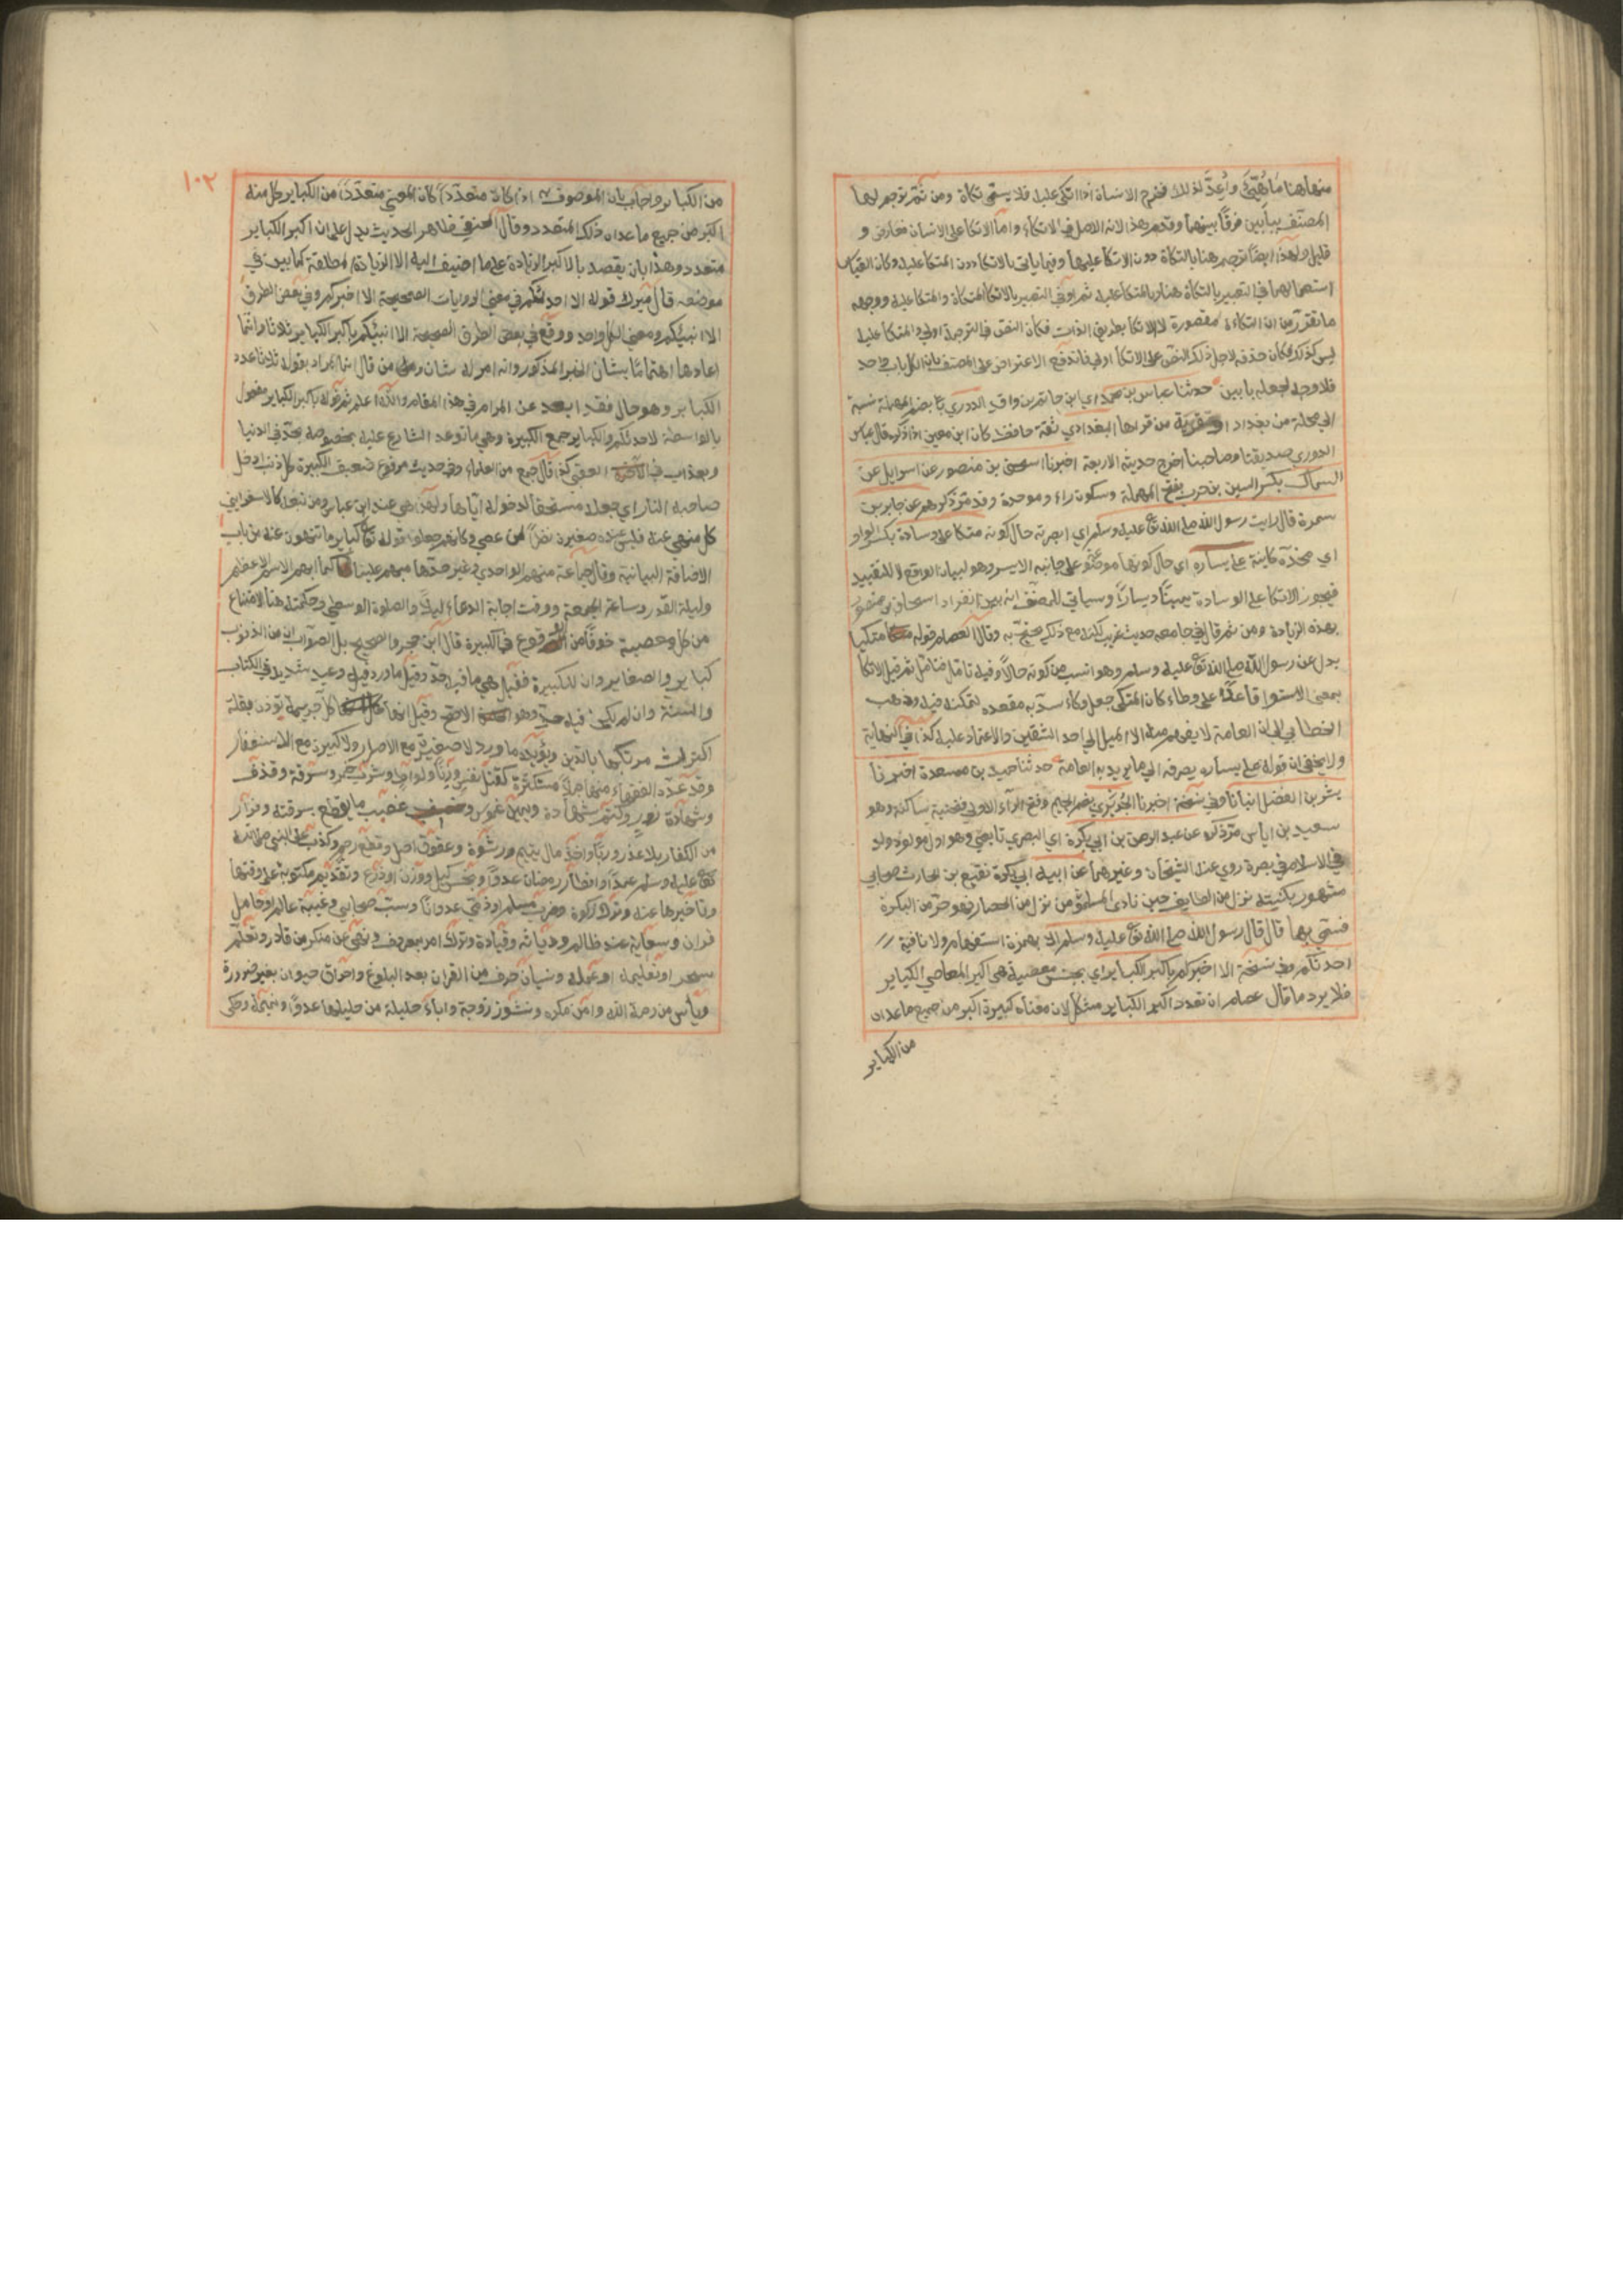 منها هنا ما هُيّئ وأُعدّ لذلك فخرج الانسان اذا اتكى عليه فلا يسمى تكاة ومن ثمّ ترجم لهما
المصنف ببابين فرقا بينهما وقدم هذا لانه الاصل في الاتكاء واما الاتكا على الانسان فعارض و
قليل ولهذا ايضا ترجم هنا بالتكاة دون الاتكا عليها وفيما ياتي بالاتكا دون المتكا عليه وكان القياس
استعمالهما في التعبير بالتكاة هنا وبالمتكا عليه ثم او في التعبير بالاتكا المتكاة والمتكا عليه ووجهه
ما تقرر من ان التكاءة مقصورة للاتكا بطريق الذات فكان النص في الترجمة اولى والمتكا عليه
ليس كذلك فكان حذفه لاجل ذلك النص على الاتكا اولى فاندفع الاعتراض على المصنف بان الكل باب واحد
فلا وجه لجعله بابين حدثنا عباس بن محمد اي ابن حاتم بن واقد الدوري بضم المهملة نسبة
الى محلة من بغداد او قرية من قراها البغدادي ثقة حافظ كان ابن معين اذا ذكره قال عباس
الدوري صديقنا وصاحبنا اخرج حديثه الاربعة اخبرنا اسحق بن منصور عن اسرايل عن
السماك بكسر السين بن حرب بفتح المهملة وسكون راء وموحدة وقد مر ذكرهم عن جابر بن
سمرة قال رايت رسول الله صلى الله تع عليه وسلم اي ابصرته حال كونه متكا على وسادة بكسر الواو
اي مخدة كاينة على يساره اي حال كونها موضوعة على جانبه الايسر وهو لبيان الواقع لا للتقييد
فيجوز الاتكا على الوسادة يمينا ويسارا وسياتي للمصنف انه بين انفراد اسحاق بن منصور
بهذه الزيادة ومن ثم قال في جامعه حديث غريب لكنه مع ذلك يحتج به وقال العصام قوله متكيا
بدل عن رسول الله صلى الله تع عليه وسلم وهو انسب من كونه حالا وفيه تامل فتامل ثم قيل الاتكا
بمعنى الاستوا قاعدا على وطاء كان المتكى جعل وكاء سد به مقعده لتمكنه فيه وذهب
الخطابي الى ان العامة لا يفهم منه الا الميل الى احد الشقين والاعتماد عليه كذا في النهاية
ولا يخفى ان قوله على يساره يصرفه الى ما يريد به العامة حدثنا حميد بن مسعدة اخبرنا
بشر بن المفضل انبانا وفي نسخة اخبرنا الجُرَيري بضم الجيم وفتح الراء الاولى فتحتية ساكنة وهو
سعيد بن اياس مر ذكره عن عبد الرحمن بن ابي بكرة اي البصري تابعي وهو اول مولود ولد
في الاسلام في بصرة روي عنه الشيخان وغيرهما عن ابيه ابي بكرة نفيع بن الحارث صحابي
مشهور بكنيته نزل من الطايف حين نادى المسلمون من نزل من الحصار فهو حر من البكرة
فسمي بها قال قال رسول الله صلى الله تع عليه وسلم الا بهمزة استفهام ولا نافية
احدثكم وفي نسخة الا اخبركم باكبر الكباير اي بجنس معصية هي اكبر المعاصي الكباير
فلا يرد ما قال عصام ان تعدد اكبر الكباير مشكل لان معناه كبيرة اكبر من جميع ما عداه
من الكباير
١٠٢
من الكباير واجاب بان الموصوف به اذا كان متعددا كان المعنى متعددا من الكباير كل منه
اكبر من جميع ما عدا ذلك المتعدد وقال الحنفي ظاهر الحديث يدل على ان اكبر الكباير
متعدد وهذا بان يقصد بالاكبر الزيادة على ما اضيف اليه لا الزيادة المطلقة كما بين في
موضعه قال ميرك قوله الا احدثكم في معنى الروايات الصحيحة الا اخبركم وفي بعض الطرق
الا انبئكم ومعنى الكل واحد ووقع في بعض الطرق الصحيحة الا انبئكم باكبر الكباير ثلاثا وانما
اعادها اهتماما بشان الخبر المذكور وانه امر له شان ومن قال انما المراد بقوله ثلاثا عدد
الكباير وهو حال فقد ابعد عن المرام في هذا المقام والله اعلم ثم قوله باكبر الكباير مفعول
بالواسطة لاحدثكم والكباير جمع الكبيرة وهي ما توعد الشارع عليه بخصوصه بحد في الدنيا
وبعذاب في العقبى كذا قال جمع من العلماء وفي حديث مرفوع ضعيف الكبيرة كل ذنب ادخل
صاحبه النار اي جعله مستحقا لدخوله اياها ولهذا هي عند ابن عباس ومن تبعه كالاسفرايني
كل منهي عنه فليس عنده صغيرة نظرا لمن عصى وكانهم جعلوا قوله تع كباير ما تنهون عنه من باب
الاضافة البيانية وقال جماعة منهم الواحدي وغير حدها مبهم علينا كما ابهم الاسم الاعظم
وليلة القدر وساعة الجمعة ووقت اجابة الدعاء ليلا والصلوة الوسطى وحكمته هنا الامتناع
من كل معصية خوفا من الوقوع في الكبيرة قال ابن حجر والصحيح بل الصواب ان من الذنوب
كباير والصغاير وان للكبيرة فقيل هي ما فيه حد وقيل ما ورد فيه وعيد شديد في الكتاب
والسنة وان لم يكن فيه حد وهو الاصح وقيل انها كل جريمة تؤذن بقلة
اكتراث مرتكبها بالدين ويؤيده ما ورد لا صغيرة مع الاصرار ولا كبيرة مع الاستغفار
وقد عدد الفقهاء منها جملا مستكثرة كقتل نفس وزنا ولواط وشرب خمر وسرقة وقذف
وشهادة زور وكتم شهادة ويمين غموس وغصب ما يقطع بسرقته وفرار
من الكفار بلا عذر وربا واخذ مال يتيم ورشوة وعقوق اصل وقطع رحم وكذب على النبي صلى الله
تع عليه وسلم عمدا وافطار رمضان عدوا وبخس كيل ووزن او ذرع وتقديم مكتوبة على وقتها
وتاخيرها عنه وترك زكوة وضرب مسلم او ذمي عدوانا وسب صحابي وغيبة عالم او حامل
قران وسعاية عند ظالم ودياثة وقيادة وترك امر بمعروف ونهي عن منكر من قادر وتعلم
سحر او تعليمه او عمله ونسيان حرف من القران بعد البلوغ واحراق حيوان بغير ضرورة
وياس من رحمة الله وامن مكره ونشوز زوجة واباء حليلة من حليلها عدوا ونميمة وحكى